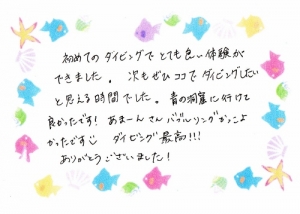 初めてのダイビングでとても良い体験が
できました。次もぜひココでダイビングしたい
と思える時間でした。青の洞窟に行けて
良かったです！あまーんさんバブルリングかっこよ
かったです ダイビング最高!!!
ありがとうございました！